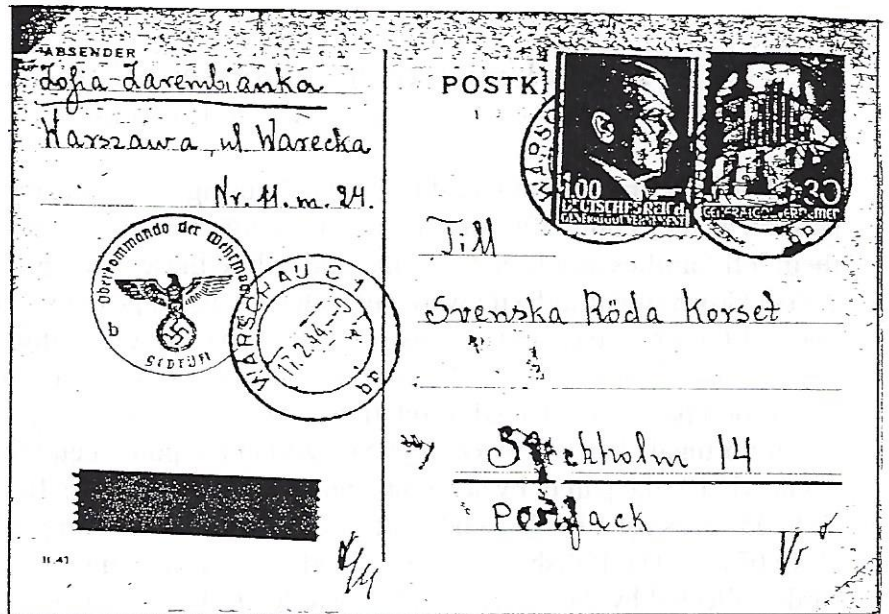 ABSENDER
Zofia Zarembianka
Warszawa, ul Warecka
Nr. 11. m. 24.
Oberkommando der Wehrmacht
b
Geprüft
WARSCHAU C 1
17.2.44
bp
II.43
POSTK
WARSCH
1.00
DEUTSCHES REICH
GENERALGOUVERNEMENT
30
GENERALGOUVERNEMENT
bp
Till
Svenska Röda Korset
Stockholm 14
Postfack